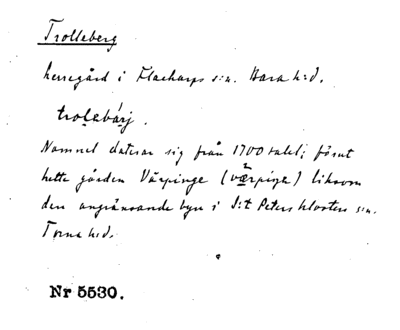 Trolleberg
herregård i Flackarps s:n. Bara h:d.
trolebárj.
Namnet daterar sig från 1700 talet; förut
hette gården Värpinge (værpiŋe) liksom
den angränsande byn i S:t Peters klosters s:n.
Torna h:d.
Nr 5530.